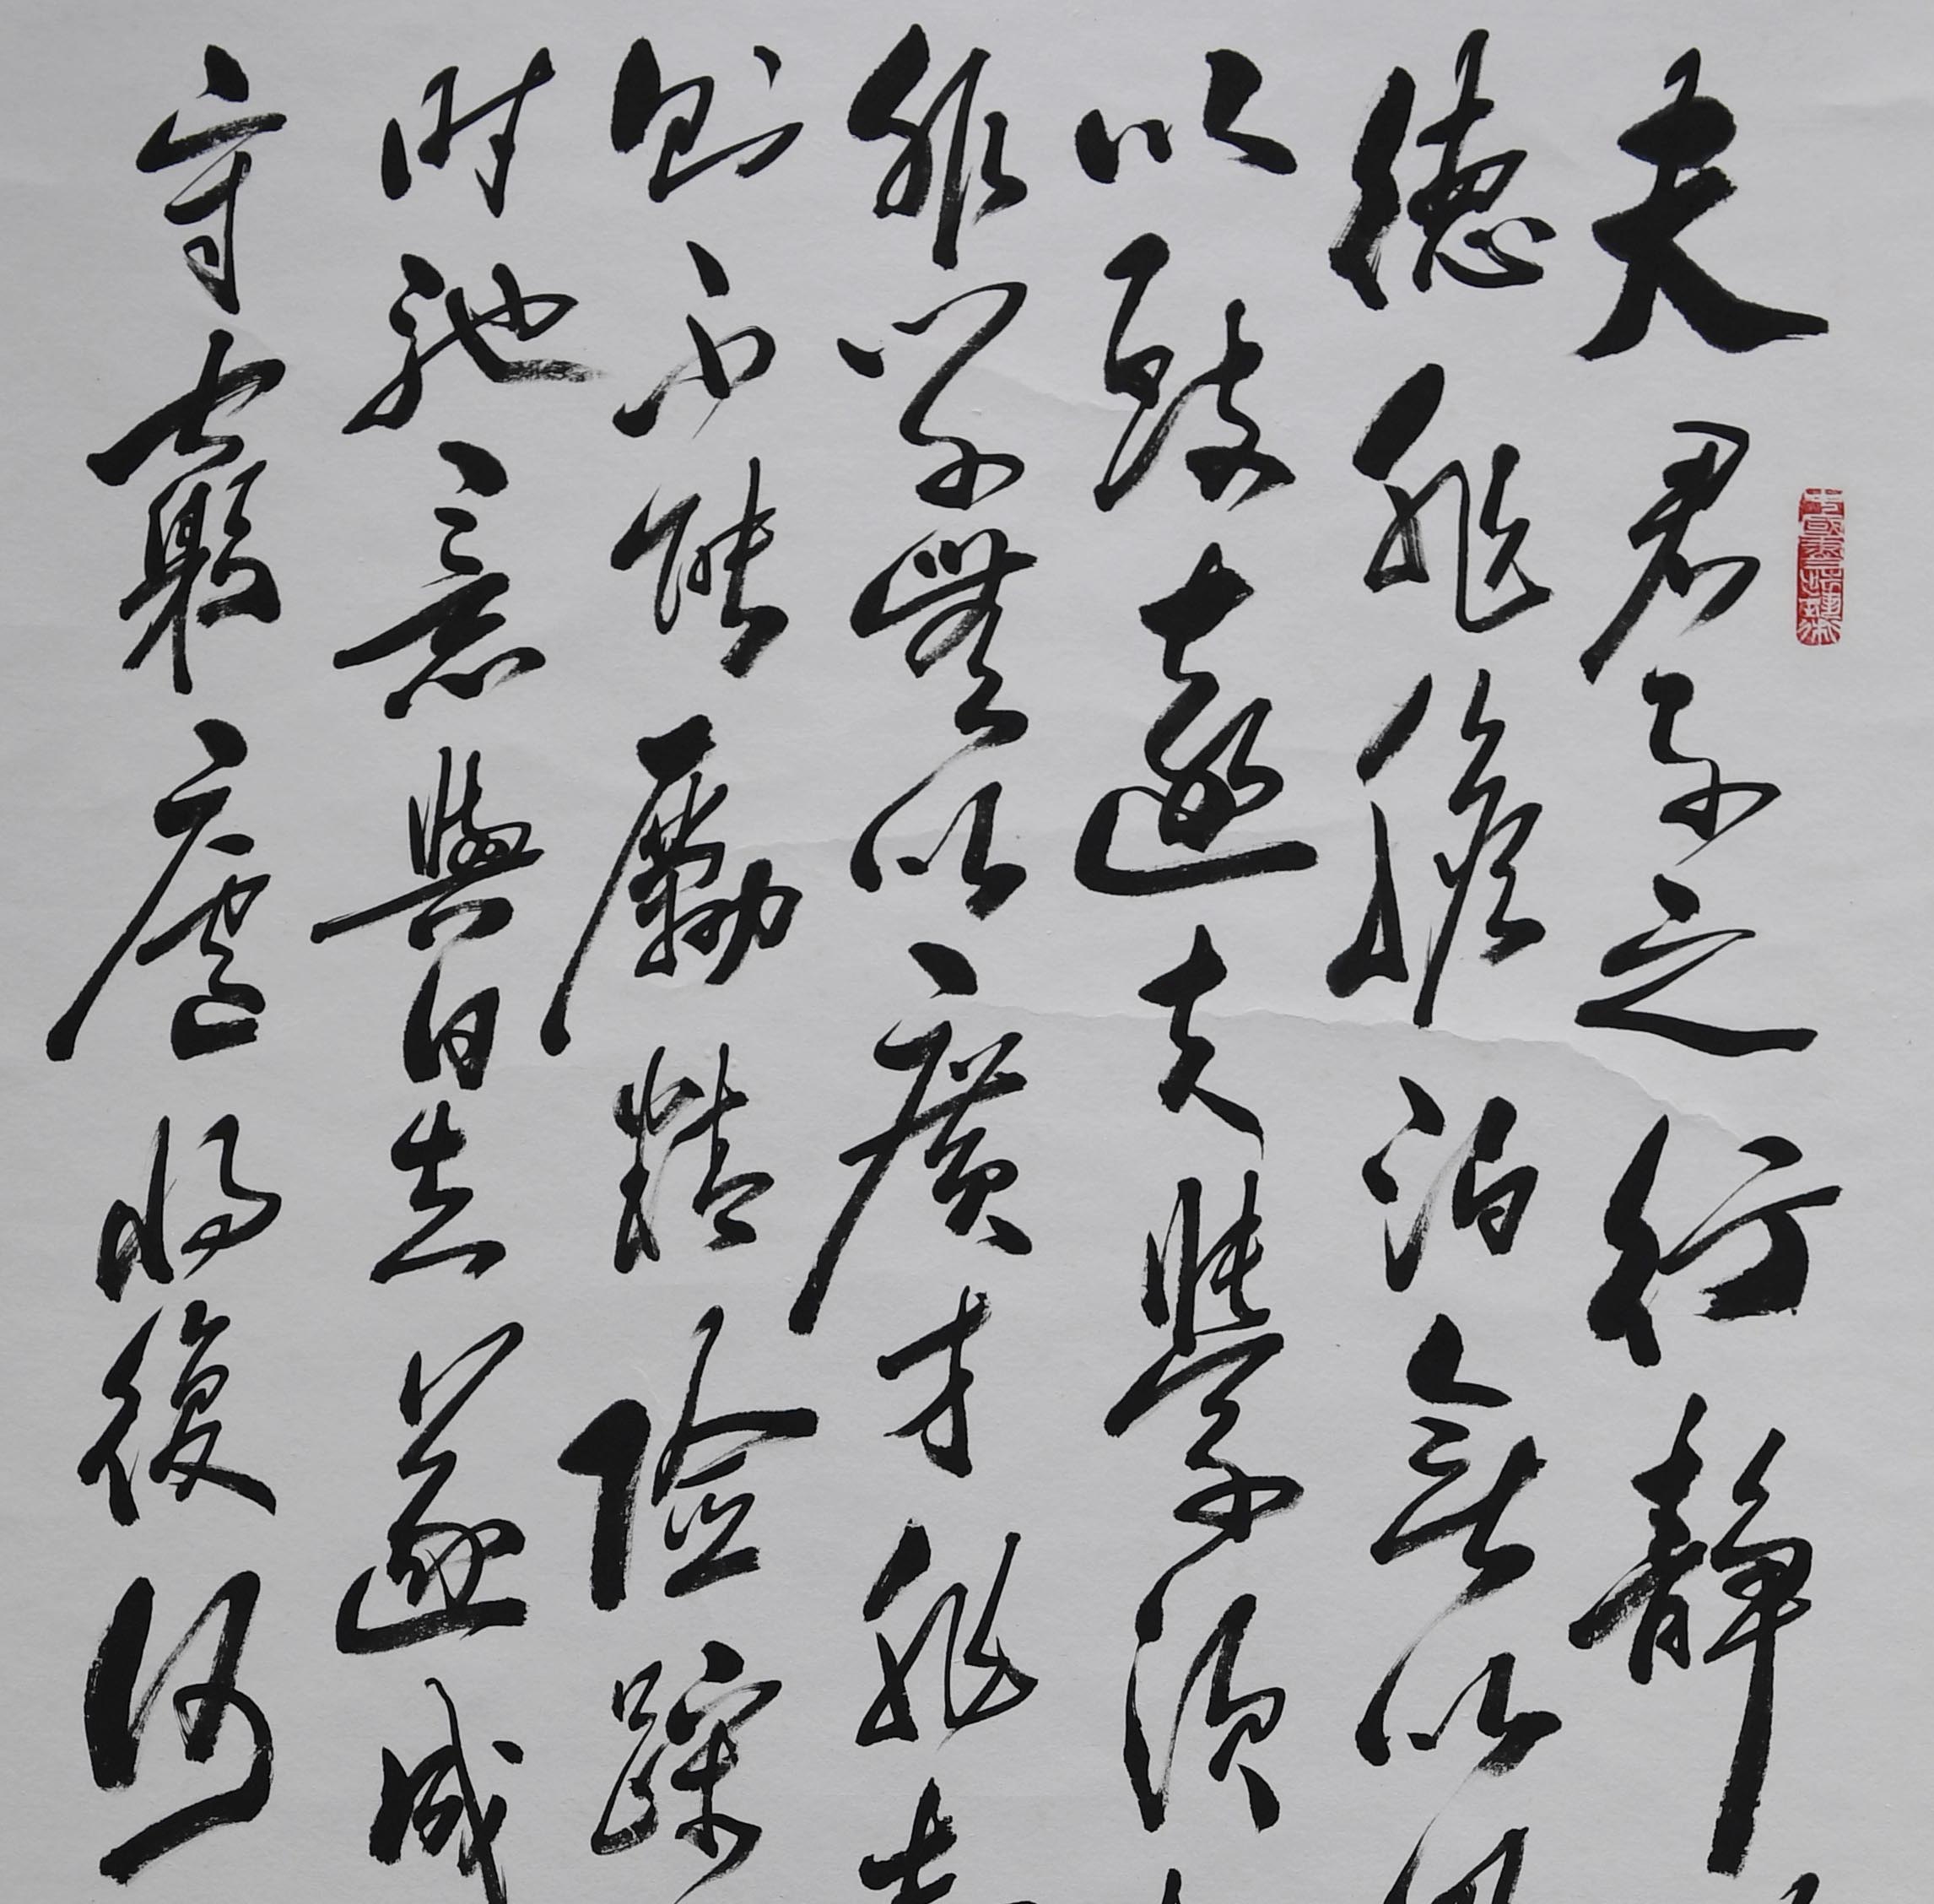 夫君子之行靜
德非澹泊無以
以致遠夫學須
非學無以廣才非志
則不能勵精險躁
時馳意與日去遂成
守窮廬將復何